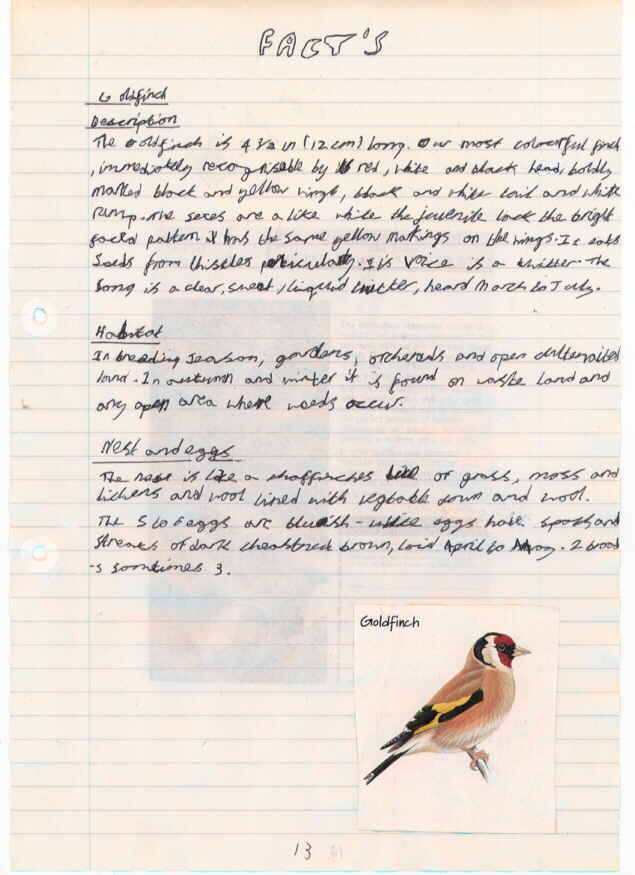 FACT'S
Goldfinch
Description
The Goldfinch is 4 ¾ in (12 cm) long. Our most colourful finch
, immediately recognisable by red, white and black head, boldly
marked black and yellow wings, black and white tail and white
rump. The sexes are alike while the juvenile lack the bright
facial pattern it has the same yellow markings on the wings. It eats
Seeds from thistles particularly. It is Voice is a twitter. The
Song is a clear, sweet, liquid twitter, heard March to July.
Habitat
In breeding season, gardens, orcherads and open cultervaited
land. In autumn and winter it is found on waste land and
any open area where weeds occur.
Nest and eggs
The nest is like a chaffinches of grass, moss and
lichens and wool lined with vegtable down and wool.
The 5 to 6 eggs are bluish-white eggs have spots and
streaks of dark brown, laid April to May. 2 brood
-s sometimes 3.
Goldfinch
13